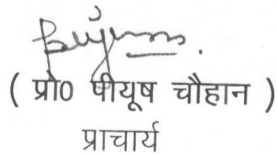 ( प्रो0 पीयूष चौहान )
प्राचार्य